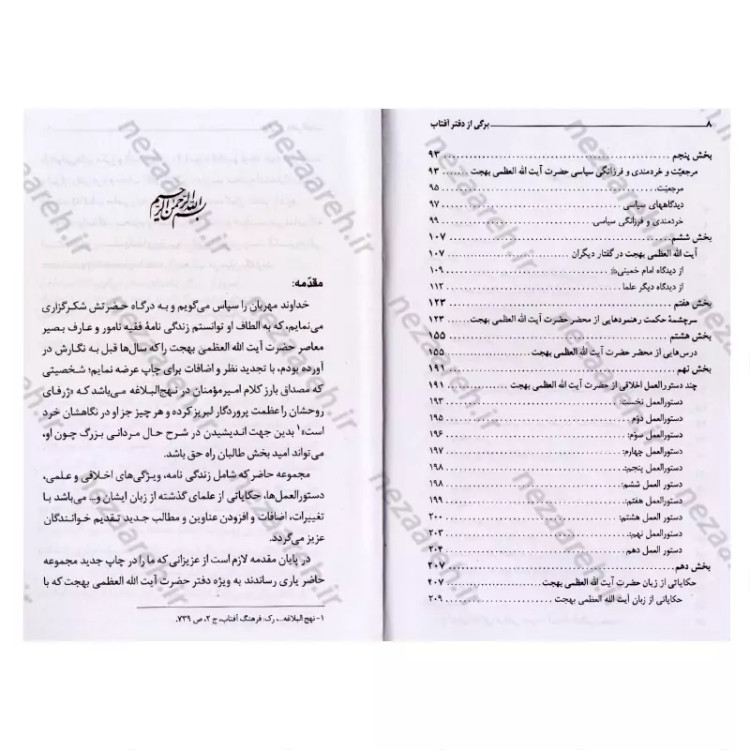 ۸ برگی از دفتر آفتاب
بخش پنجم ۹۳
مرجعیّت و خردمندی و فرزانگی سیاسی حضرت آیت الله العظمی بهجت ۹۳
مرجعیّت: ۹۵
دیدگاههای سیاسی ۹۷
خردمندی و فرزانگی سیاسی: ۹۹
بخش ششم ۱۰۷
آیت الله العظمی بهجت در گفتار دیگران ۱۰۷
از دیدگاه امام خمینی ۱۰۹
از دیدگاه دیگر علما ۱۱۲
بخش هفتم ۱۲۳
سرچشمهٔ حکمت رهنمودهایی از محضر حضرت آیت الله العظمی بهجت ۱۲۳
بخش هشتم ۱۵۵
درس‌هایی از محضر حضرت آیت الله العظمی بهجت ۱۵۵
بخش نهم ۱۹۱
چند دستورالعمل اخلاقی از حضرت آیت الله العظمی بهجت ۱۹۱
دستورالعمل نخست: ۱۹۳
دستورالعمل دوّم: ۱۹۵
دستورالعمل سوّم: ۱۹۶
دستورالعمل چهارم: ۱۹۷
دستورالعمل پنجم: ۱۹۸
دستورالعمل ششم: ۱۹۸
دستورالعمل هفتم: ۱۹۹
دستورالعمل هشتم: ۲۰۰
دستور العمل نهم: ۲۰۳
دستور العمل دهم ۲۰۴
بخش دهم ۲۰۷
حکایاتی از زبان حضرت آیت الله العظمی بهجت ۲۰۷
حکایاتی از زبان آیت الله العظمی بهجت ۲۰۹
بسم الله الرحمن الرحیم
مقدّمه:
خداوند مهربان را سپاس می‌گویم و به درگاه حضرتش شکرگزاری
می‌نمایم، که به الطاف او توانستم زندگی نامهٔ فقیه نامور و عارف بصیر
معاصر حضرت آیت الله العظمی بهجت را که سال‌ها قبل به نگارش در
آورده بودم، با تجدید نظر و اضافات برای چاپ عرضه نمایم؛ شخصیتی
که مصداق بارز کلام امیرمؤمنان در نهج‌البلاغه می‌باشد که «ژرفای
روحشان را عظمت پروردگار لبریز کرده و هر چیز جز او در نگاهشان خرد
است»۱ بدین جهت اندیشیدن در شرح حال مردانی بزرگ چون او،
می‌تواند امید بخش طالبان راه حق باشد.
مجموعه حاضر که شامل زندگی نامه، ویژگی‌های اخلاقی و علمی،
دستورالعمل‌ها، حکایاتی از علمای گذشته از زبان ایشان و... می‌باشد با
تغییرات، اضافات و افزودن عناوین و مطالب جدید تقدیم خوانندگان
عزیز می‌گردد.
در پایان مقدمه لازم است از عزیزانی که ما را در چاپ جدید مجموعه
حاضر یاری رساندند به ویژه دفتر حضرت آیت الله العظمی بهجت که با
۱- نهج‌البلاغه...، رک: فرهنگ آفتاب، ج ۲، ص ۷۳۹.
nezaareh.ir
nezaareh.ir
nezaareh.ir
nezaareh.ir
nezaareh.ir
nezaareh.ir